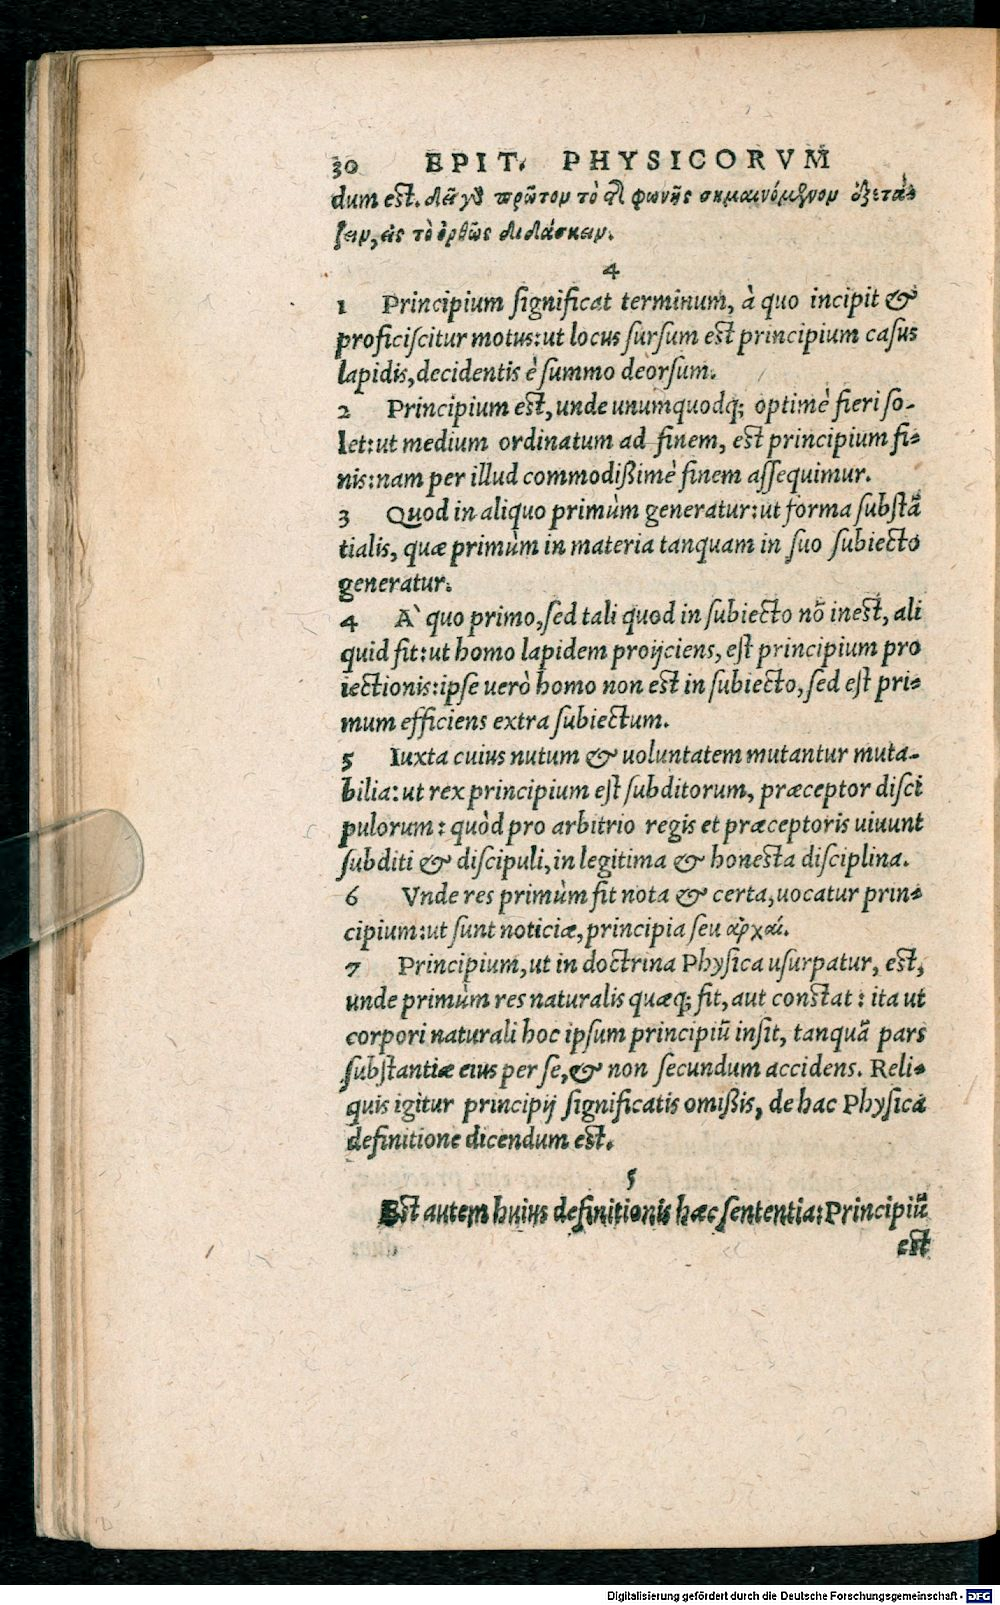 30 EPIT. PHYSICORVM
dum est. δεῖ γὰρ πρῶτον τὸ τῆς φωνῆς σημαινόμενον ἐξετάζειν, εἰς τὸ ὀρθῶς διδάσκειν.
4
1 Principium significat terminum, à quo incipit &
proficiscitur motus: ut locus sursum est principium casus
lapidis, decidentis è summo deorsum.
2 Principium est, unde unumquodq; optimè fieri so-
let: ut medium ordinatum ad finem, est principium fi-
nis: nam per illud commodißimè finem assequimur.
3 Quod in aliquo primùm generatur: ut forma substã
tialis, quæ primùm in materia tanquam in suo subiecto
generatur.
4 A` quo primo, sed tali quod in subiecto nõ inest, ali
quid fit: ut homo lapidem proijciens, est principium pro
iectionis: ipse uerò homo non est in subiecto, sed est pri-
mum efficiens extra subiectum.
5 Iuxta cuius nutum & uoluntatem mutantur muta-
bilia: ut rex principium est subditorum, præceptor disci
pulorum: quòd pro arbitrio regis et præceptoris uiuunt
subditi & discipuli, in legitima & honesta disciplina.
6 Vnde res primùm fit nota & certa, uocatur prin-
cipium: ut sunt noticiæ, principia seu ἀρχαί.
7 Principium, ut in doctrina Physica usurpatur, est,
unde primùm res naturalis quæq; fit, aut constat: ita ut
corpori naturali hoc ipsum principiũ insit, tanquã pars
substantiæ eius per se, & non secundum accidens. Reli-
quis igitur principij significatis omißis, de hac Physica
definitione dicendum est.
5
Est autem huius definitionis hæc sententia: Principiũ
est
Digitalisierung gefördert durch die Deutsche Forschungsgemeinschaft - DFG